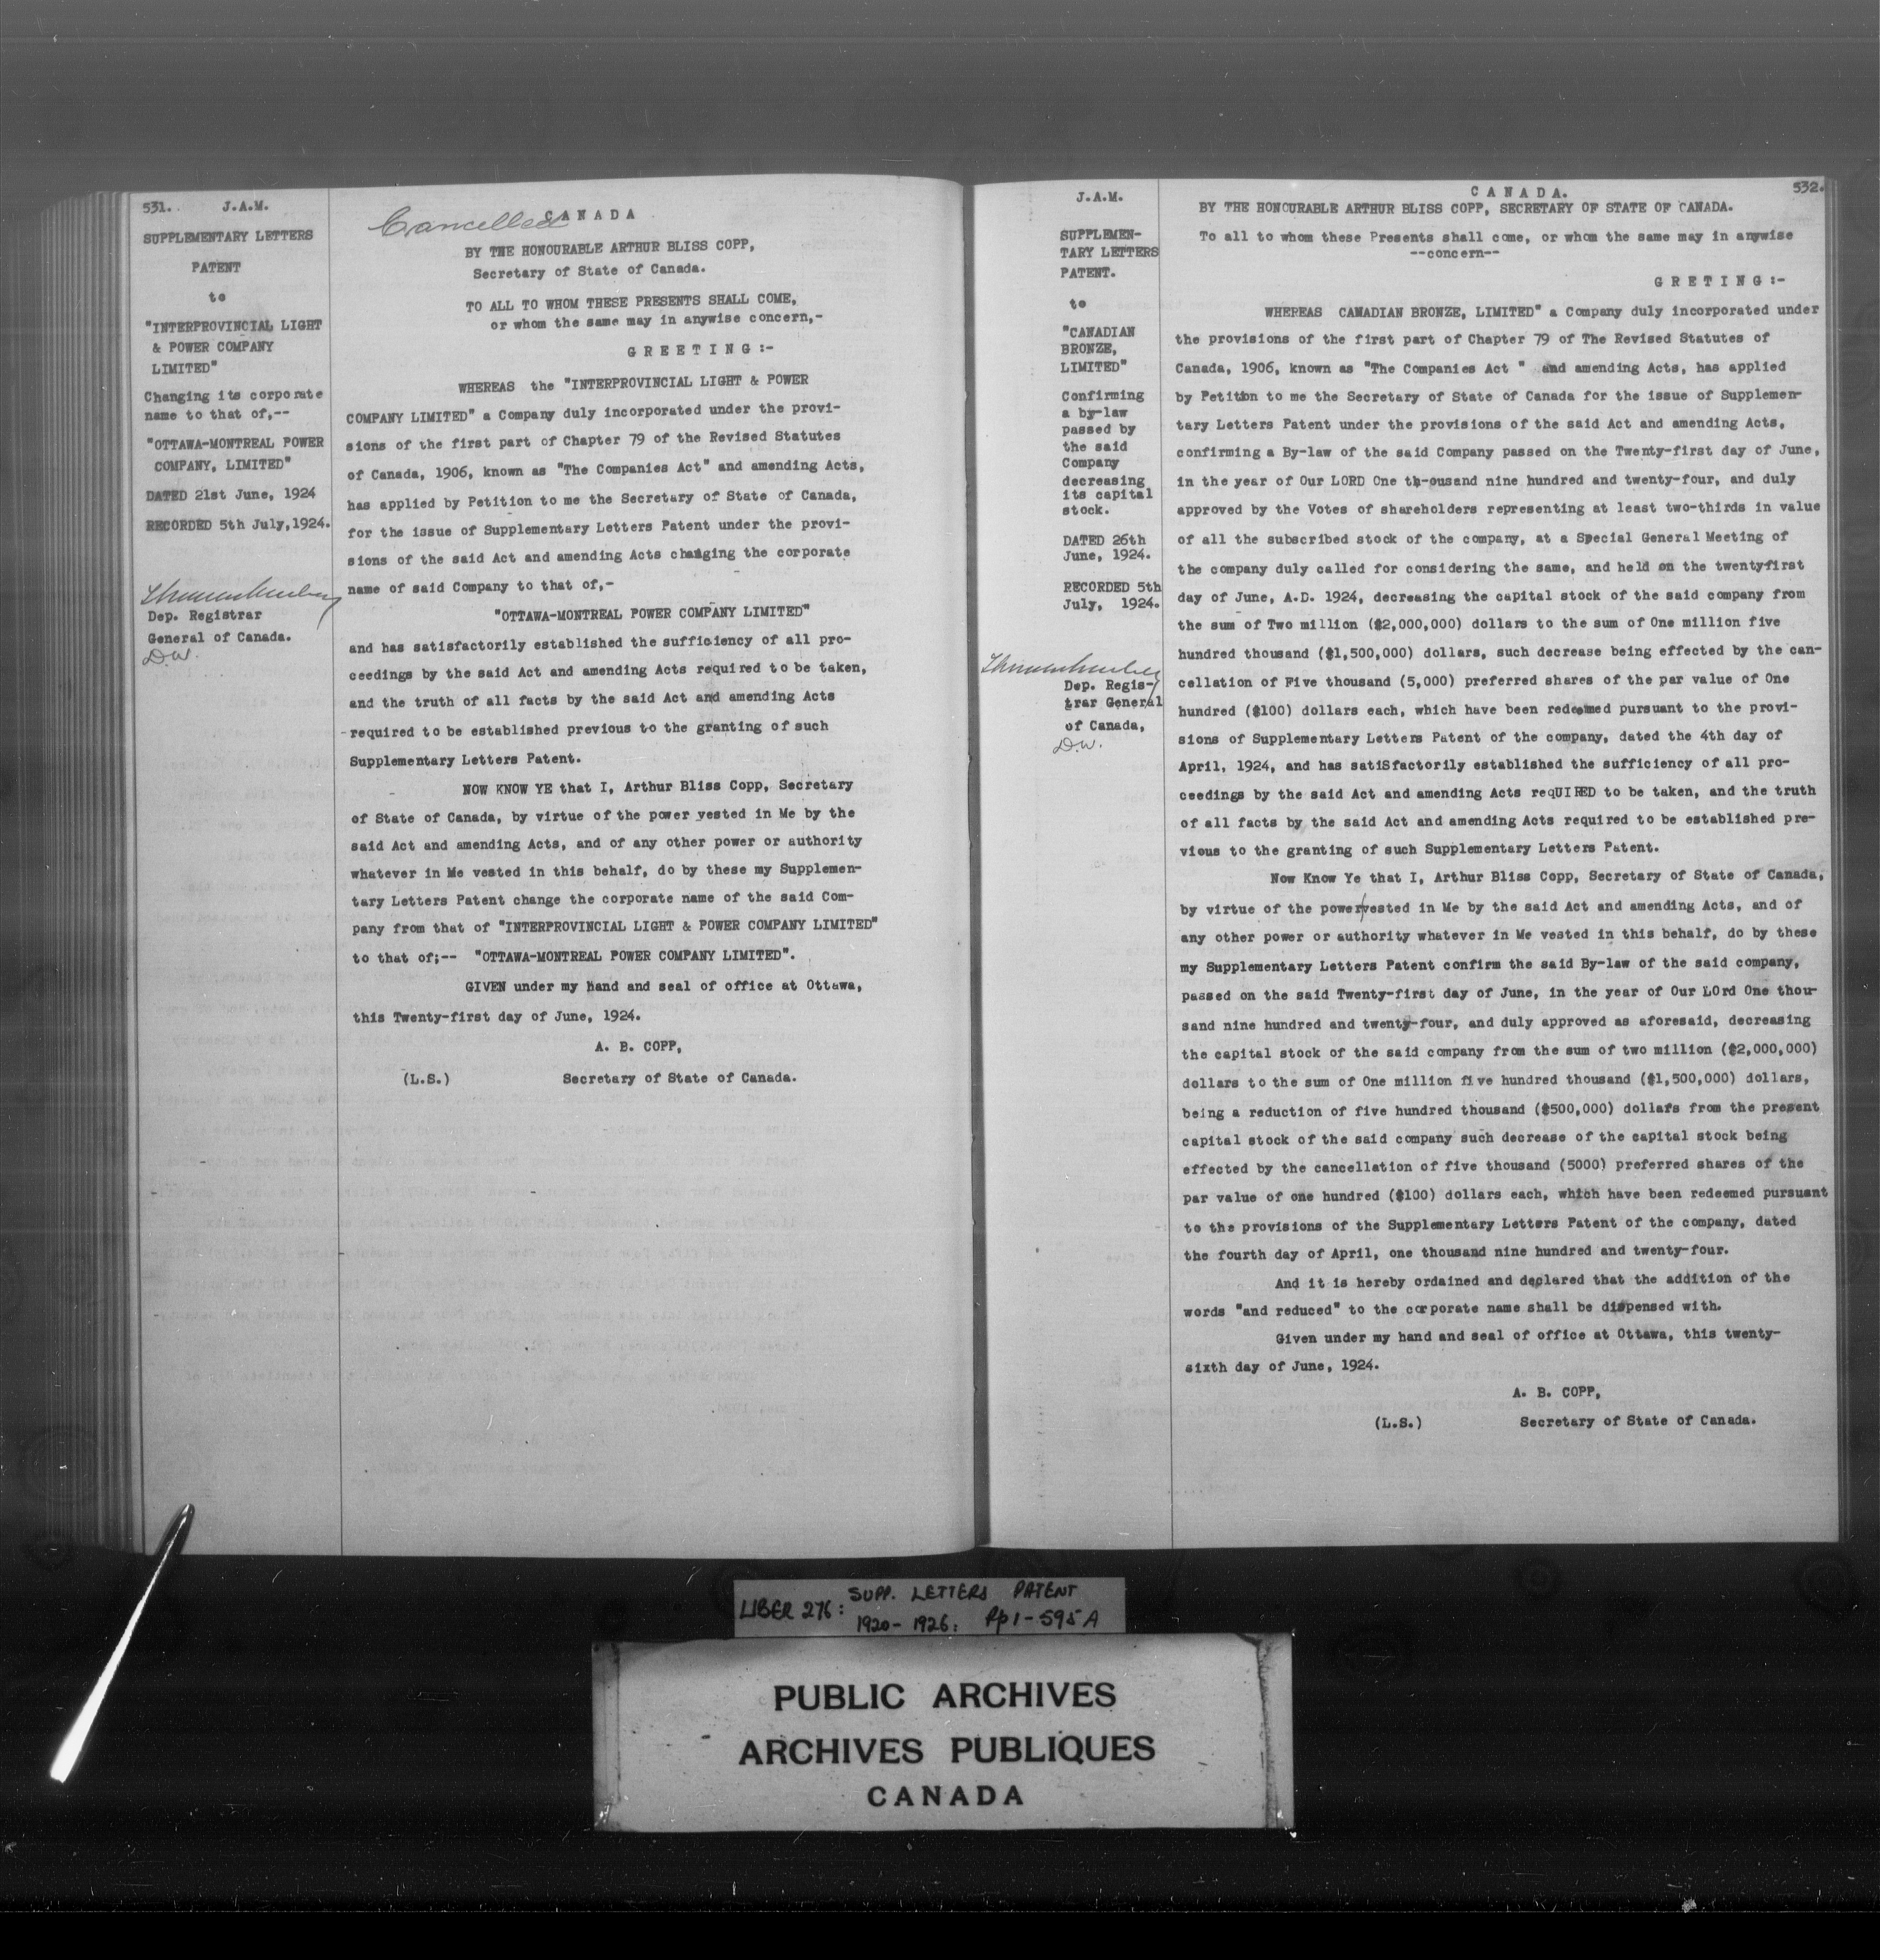 531. J.A.M.
SUPPLEMENTARY LETTERS
PATENT
to
"INTERPROVINCIAL LIGHT
& POWER COMPANY
LIMITED"
Changing its corporate
name to that of,--
"OTTAWA-MONTREAL POWER
COMPANY, LIMITED"
DATED 21st June, 1924
RECORDED 5th July,1924.
Dep. Registrar
General of Canada.
D.W.
Cancelled
CANADA
BY THE HONOURABLE ARTHUR BLISS COPP,
Secretary of State of Canada.
TO ALL TO WHOM THESE PRESENTS SHALL COME,
or whom the same may in anywise concern,-
GREETING:-
WHEREAS the "INTERPROVINCIAL LIGHT & POWER
COMPANY LIMITED" a Company duly incorporated under the provi-
sions of the first part of Chapter 79 of the Revised Statutes
of Canada, 1906, known as "The Companies Act" and amending Acts,
has applied by Petition to me the Secretary of State of Canada,
for the issue of Supplementary Letters Patent under the provi-
sions of the said Act and amending Acts changing the corporate
name of said Company to that of,-
"OTTAWA-MONTREAL POWER COMPANY LIMITED"
and has satisfactorily established the sufficiency of all pro-
ceedings by the said Act and amending Acts required to be taken,
and the truth of all facts by the said Act and amending Acts
required to be established previous to the granting of such
Supplementary Letters Patent.
NOW KNOW YE that I, Arthur Bliss Copp, Secretary
of State of Canada, by virtue of the power vested in Me by the
said Act and amending Acts, and of any other power or authority
whatever in Me vested in this behalf, do by these my Supplemen-
tary Letters Patent change the corporate name of the said Com-
pany from that of "INTERPROVINCIAL LIGHT & POWER COMPANY LIMITED"
to that of;-- "OTTAWA-MONTREAL POWER COMPANY LIMITED".
GIVEN under my hand and seal of office at Ottawa,
this Twenty-first day of June, 1924.
A. B. COPP,
(L.S.) Secretary of State of Canada.
J.A.M.
SUPPLEMEN-
TARY LETTERS
PATENT.
to
"CANADIAN
BRONZE,
LIMITED"
Confirming
a by-law
passed by
the said
Company
decreasing
its capital
stock.
DATED 26th
June, 1924.
RECORDED 5th
July, 1924.
Dep. Regis-
trar General
of Canada,
D.W.
532.
CANADA.
BY THE HONOURABLE ARTHUR BLISS COPP, SECRETARY OF STATE OF CANADA.
To all to whom these Presents shall come, or whom the same may in anywise
--concern--
GRETING:-
WHEREAS CANADIAN BRONZE, LIMITED" a Company duly incorporated under
the provisions of the first part of Chapter 79 of The Revised Statutes of
Canada, 1906, known as "The Companies Act " and amending Acts, has applied
by Petition to me the Secretary of State of Canada for the issue of Supplemen-
tary Letters Patent under the provisions of the said Act and amending Acts,
confirming a By-law of the said Company passed on the Twenty-first day of June,
in the year of Our LORD One th-ousand nine hundred and twenty-four, and duly
approved by the Votes of shareholders representing at least two-thirds in value
of all the subscribed stock of the company, at a Special General Meeting of
the company duly called for considering the same, and held on the twentyfirst
day of June, A.D. 1924, decreasing the capital stock of the said company from
the sum of Two million ($2,000,000) dollars to the sum of One million five
hundred thousand ($1,500,000) dollars, such decrease being effected by the can-
cellation of Five thousand (5,000) preferred shares of the par value of One
hundred ($100) dollars each, which have been redeemed pursuant to the provi-
sions of Supplementary Letters Patent of the company, dated the 4th day of
April, 1924, and has satiSfactorily established the sufficiency of all pro-
ceedings by the said Act and amending Acts reqUIRED to be taken, and the truth
of all facts by the said Act and amending Acts required to be established pre-
vious to the granting of such Supplementary Letters Patent.
Now Know Ye that I, Arthur Bliss Copp, Secretary of State of Canada,
by virtue of the power/vested in Me by the said Act and amending Acts, and of
any other power or authority whatever in Me vested in this behalf, do by these
my Supplementary Letters Patent confirm the said By-law of the said company,
passed on the said Twenty-first day of June, in the year of Our LOrd One thou-
sand nine hundred and twenty-four, and duly approved as aforesaid, decreasing
the capital stock of the said company from the sum of two million ($2,000,000)
dollars to the sum of One million five hundred thousand ($1,500,000) dollars,
being a reduction of five hundred thousand ($500,000) dollars from the present
capital stock of the said company such decrease of the capital stock being
effected by the cancellation of five thousand (5000) preferred shares of the
par value of one hundred ($100) dollars each, which have been redeemed pursuant
to the provisions of the Supplementary Letters Patent of the company, dated
the fourth day of April, one thousand nine hundred and twenty-four.
And it is hereby ordained and declared that the addition of the
words "and reduced" to the corporate name shall be dispensed with.
Given under my hand and seal of office at Ottawa, this twenty-
sixth day of June, 1924.
A. B. COPP,
(L.S.) Secretary of State of Canada.
LIBER 276: SUPP. LETTERS PATENT
1920-1926: Pp 1-595A
PUBLIC ARCHIVES
ARCHIVES PUBLIQUES
CANADA